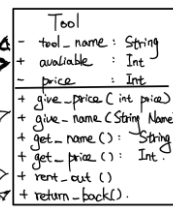 Tool
- tool_name : String
+ avaliable : Int
- price : Int
+ give_price ( int price)
+ give_name ( String Name)
+ get_name () : String
+ get_price () : Int.
+ rent_out ()
+ return_back().